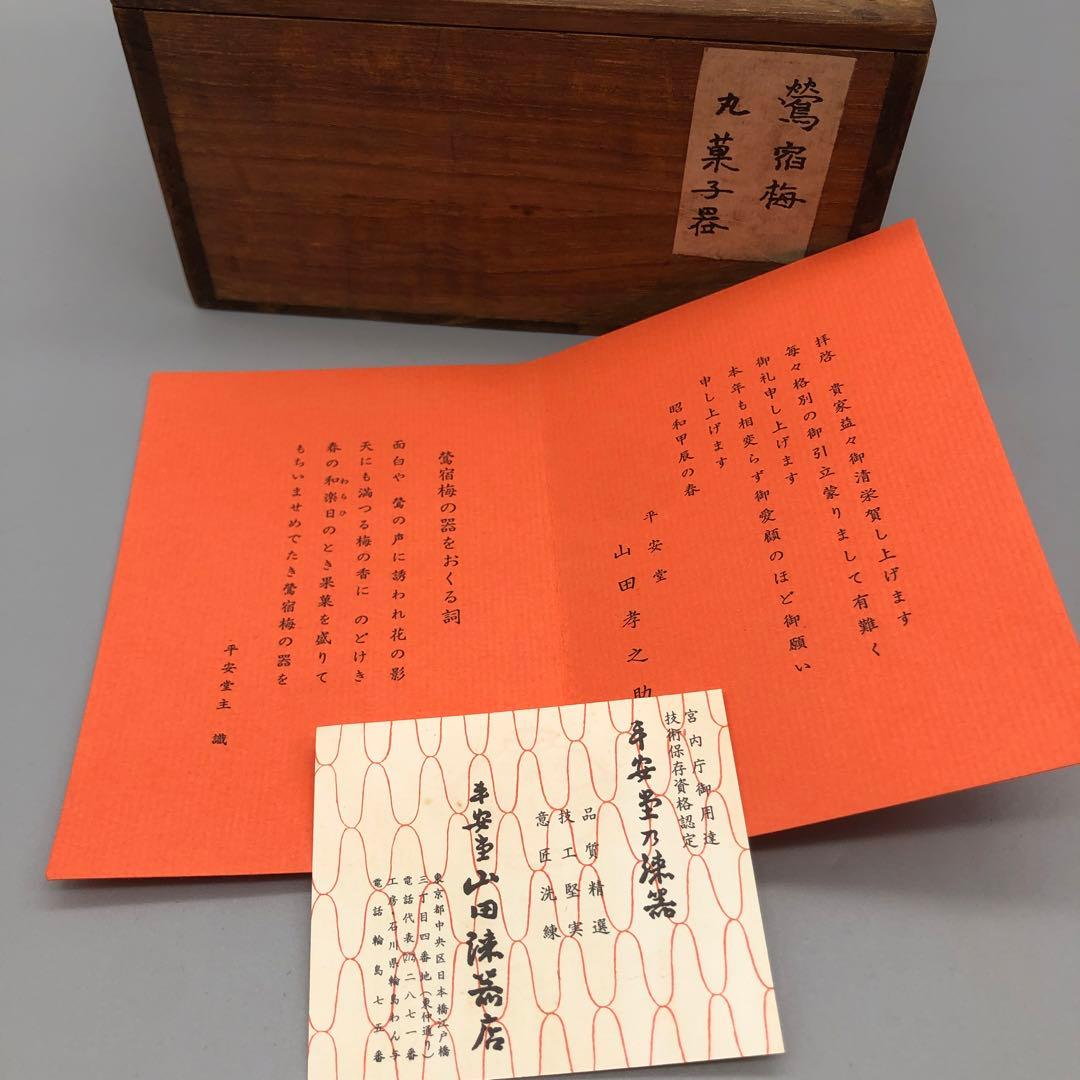 鶯宿梅
丸菓子器
拝啓 貴家益々御清栄賀し上げます
毎々格別の御引立蒙りまして有難く
御礼申し上げます
本年も相変らず御愛顧のほど御願い
申し上げます
昭和甲辰の春
平安堂
山田孝之助
鶯宿梅の器をおくる詞
面白や 鶯の声に誘われ花の影
天にも満つる梅の香に のどけき
春の和楽日のとき果菓を盛りて
わらひ
もちいませめでたき鶯宿梅の器を
平安堂主 識
宮内庁御用達
技術保存資格認定
平安堂乃漆器
品質精選
技工堅実
意匠洗練
平安堂山田漆器店
東京都中央区日本橋江戸橋
三丁目四番地(東仲通り)
電話代表(272)二八七一番
工房・石川県輪島わん与
電話輪島七五番